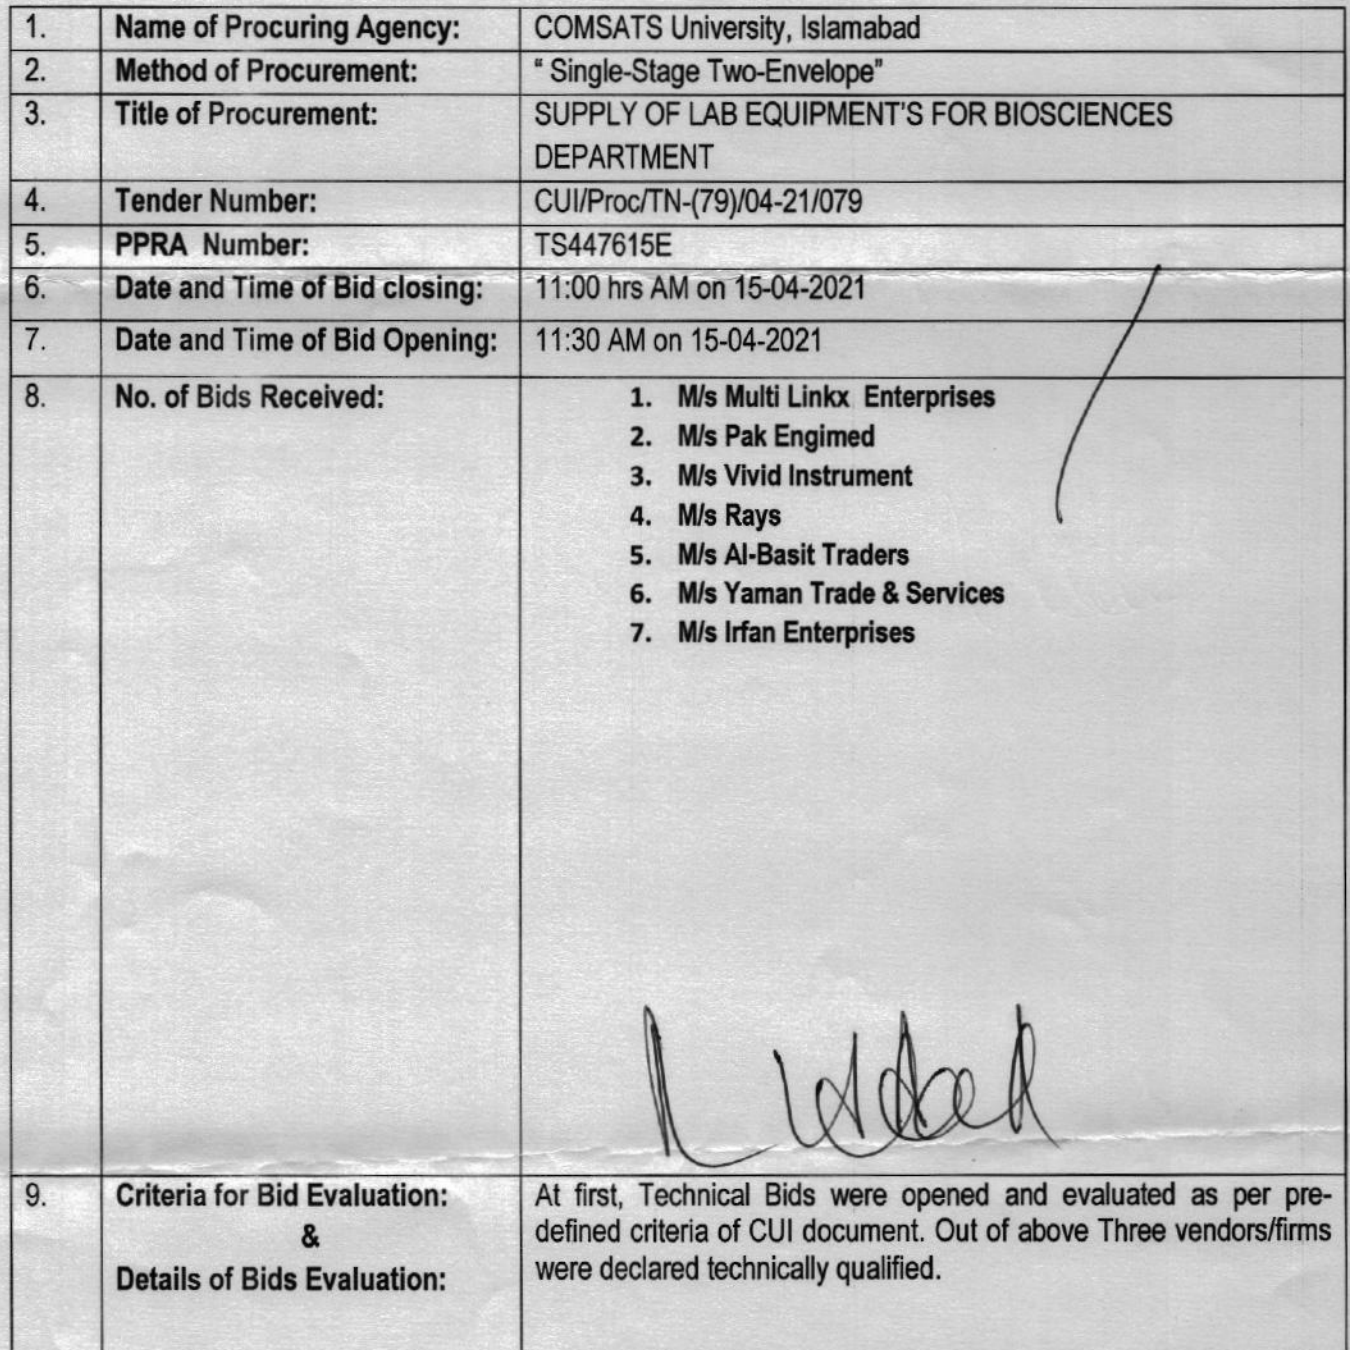 1. Name of Procuring Agency: COMSATS University, Islamabad
2. Method of Procurement: “ Single-Stage Two-Envelope”
3. Title of Procurement: SUPPLY OF LAB EQUIPMENT'S FOR BIOSCIENCES
DEPARTMENT
4. Tender Number: CUI/Proc/TN-(79)/04-21/079
5. PPRA Number: TS447615E
6. Date and Time of Bid closing: 11:00 hrs AM on 15-04-2021
7. Date and Time of Bid Opening: 11:30 AM on 15-04-2021
8. No. of Bids Received: 1. M/s Multi Linkx Enterprises
2. M/s Pak Engimed
3. M/s Vivid Instrument
4. M/s Rays
5. M/s Al-Basit Traders
6. M/s Yaman Trade & Services
7. M/s Irfan Enterprises
9. Criteria for Bid Evaluation: At first, Technical Bids were opened and evaluated as per pre-
& defined criteria of CUI document. Out of above Three vendors/firms
Details of Bids Evaluation: were declared technically qualified.